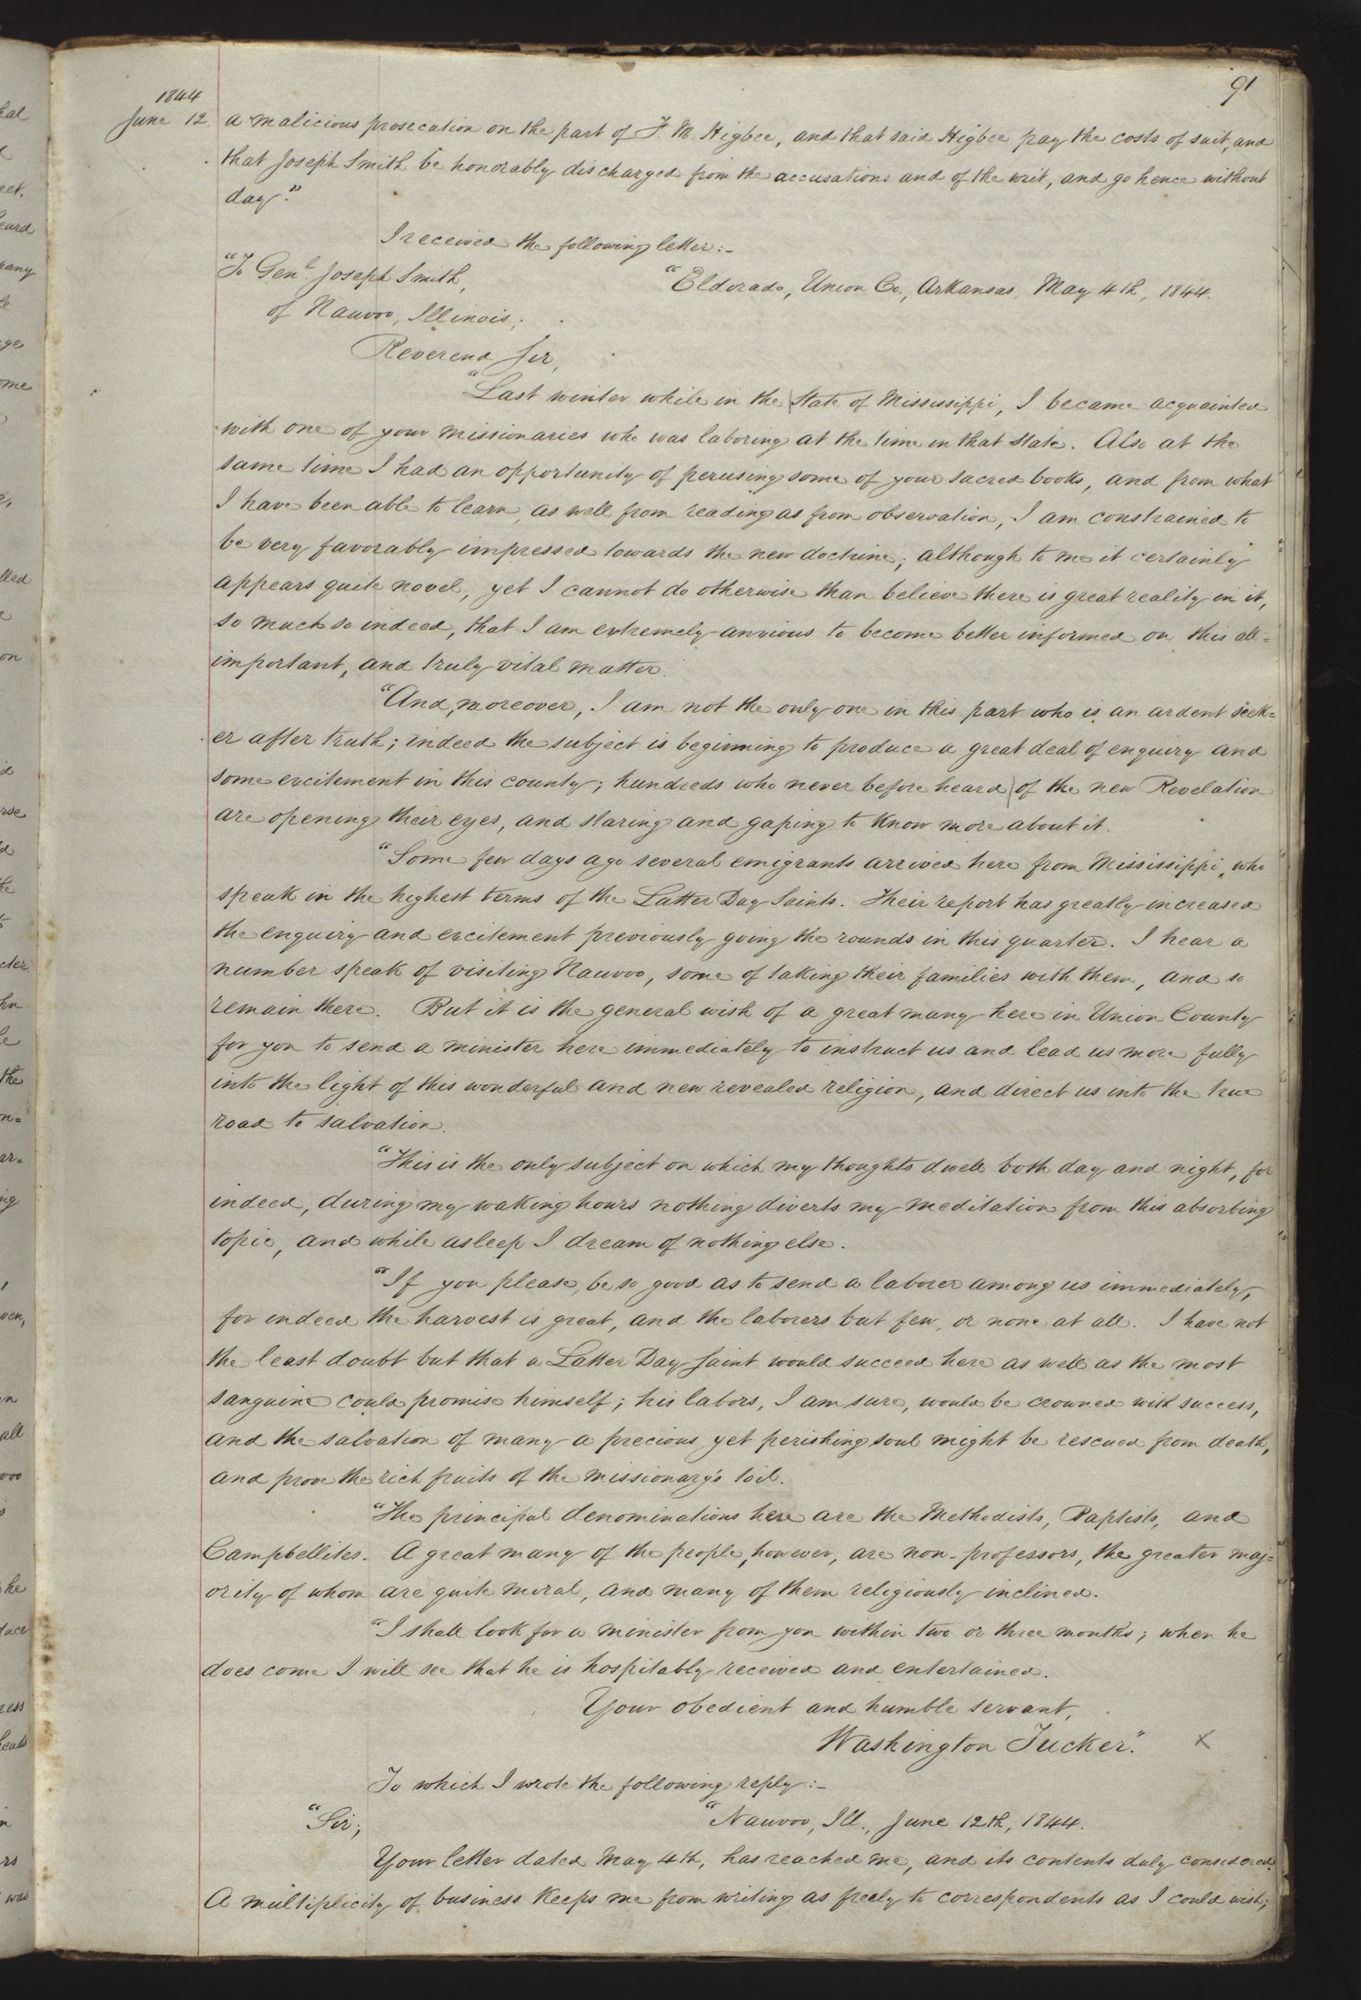 91
1844
June 12 a malicious prosecution on the part of F. M. Higbee, and that said Higbee pay the costs of suit, and
that Joseph Smith be honorably discharged from the accusations and of the writ, and go hence without
day."
I received the following letter:-
"To Genl. Joseph Smith,
"Eldorado, Union Co, Arkansas, May 4th, 1844.
of Nauvoo, Illinois;
Reverend Sir,
"Last winter while in the State of Mississippi, I became acquainted
with one of your missionaries who was laboring at the time in that state. Also at the
same time I had an opportunity of perusing some of your sacred books, and from what
I have been able to learn, as well from reading as from observation, I am constrained to
be very favorably impressed towards the new doctrine; although to me it certainly
appears quite novel, yet I cannot do otherwise than believe there is great reality in it,
so much so indeed, that I am extremely anxious to become better informed on this all=
important, and truly vital matter.
"And, moreover, I am not the only one in this part who is an ardent seek=
er after truth; indeed the subject is beginning to produce a great deal of enquiry and
some excitement in this county; hundreds who never before heard of the new Revelation
are opening their eyes, and staring and gaping to know more about it.
"Some few days ago several emigrants arrived here from Mississippi, who
speak in the highest terms of the Latter Day Saints. Their report has greatly increased
the enquiry and excitement previously going the rounds in this quarter. I hear a
number speak of visiting Nauvoo, some of taking their families with them, and so
remain there. But it is the general wish of a great many here in Union County
for you to send a minister here immediately to instruct us and lead us more fully
into the light of this wonderful and new revealed religion, and direct us into the true
road to salvation.
"This is the only subject on which my thoughts dwell both day and night, for
indeed, during my waking hours nothing diverts my meditation from this absorbing
topic, and while asleep I dream of nothing else.
"If you please, be so good as to send a laborer among us immediately,
for indeed the harvest is great, and the laborers but few, or none at all. I have not
the least doubt but that a Latter Day Saint would succeed here as well as the most
sanguine could promise himself; his labors, I am sure, would be crowned with success,
and the salvation of many a precious yet perishing soul might be rescued from death,
and prove the rich fruits of the missionary's toil.
"The principal denominations here are the Methodists, Baptists, and
Campbellites. A great many of the people, however, are non-professors, the greater maj=
ority of whom are quite moral, and many of them religiously inclined.
"I shall look for a minister from you within two or three months; when he
does come I will see that he is hospitably received and entertained.
Your obedient and humble servant,
Washington Tucker." X
To which I wrote the following reply:-
"Sir; "Nauvoo, Ill., June 12th, 1844.
Your letter dated May 4th, has reached me, and its contents duly considered.
A multiplicity of business keeps me from writing as freely to correspondents as I could wish;